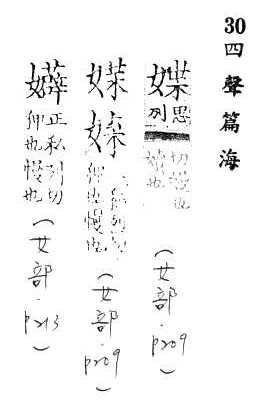 30 四聲篇海
媟 思列切慢也嬻也（女部．p209）
列切狎也慢也（女部．p209）
正私列切狎也慢也（女部．p213）